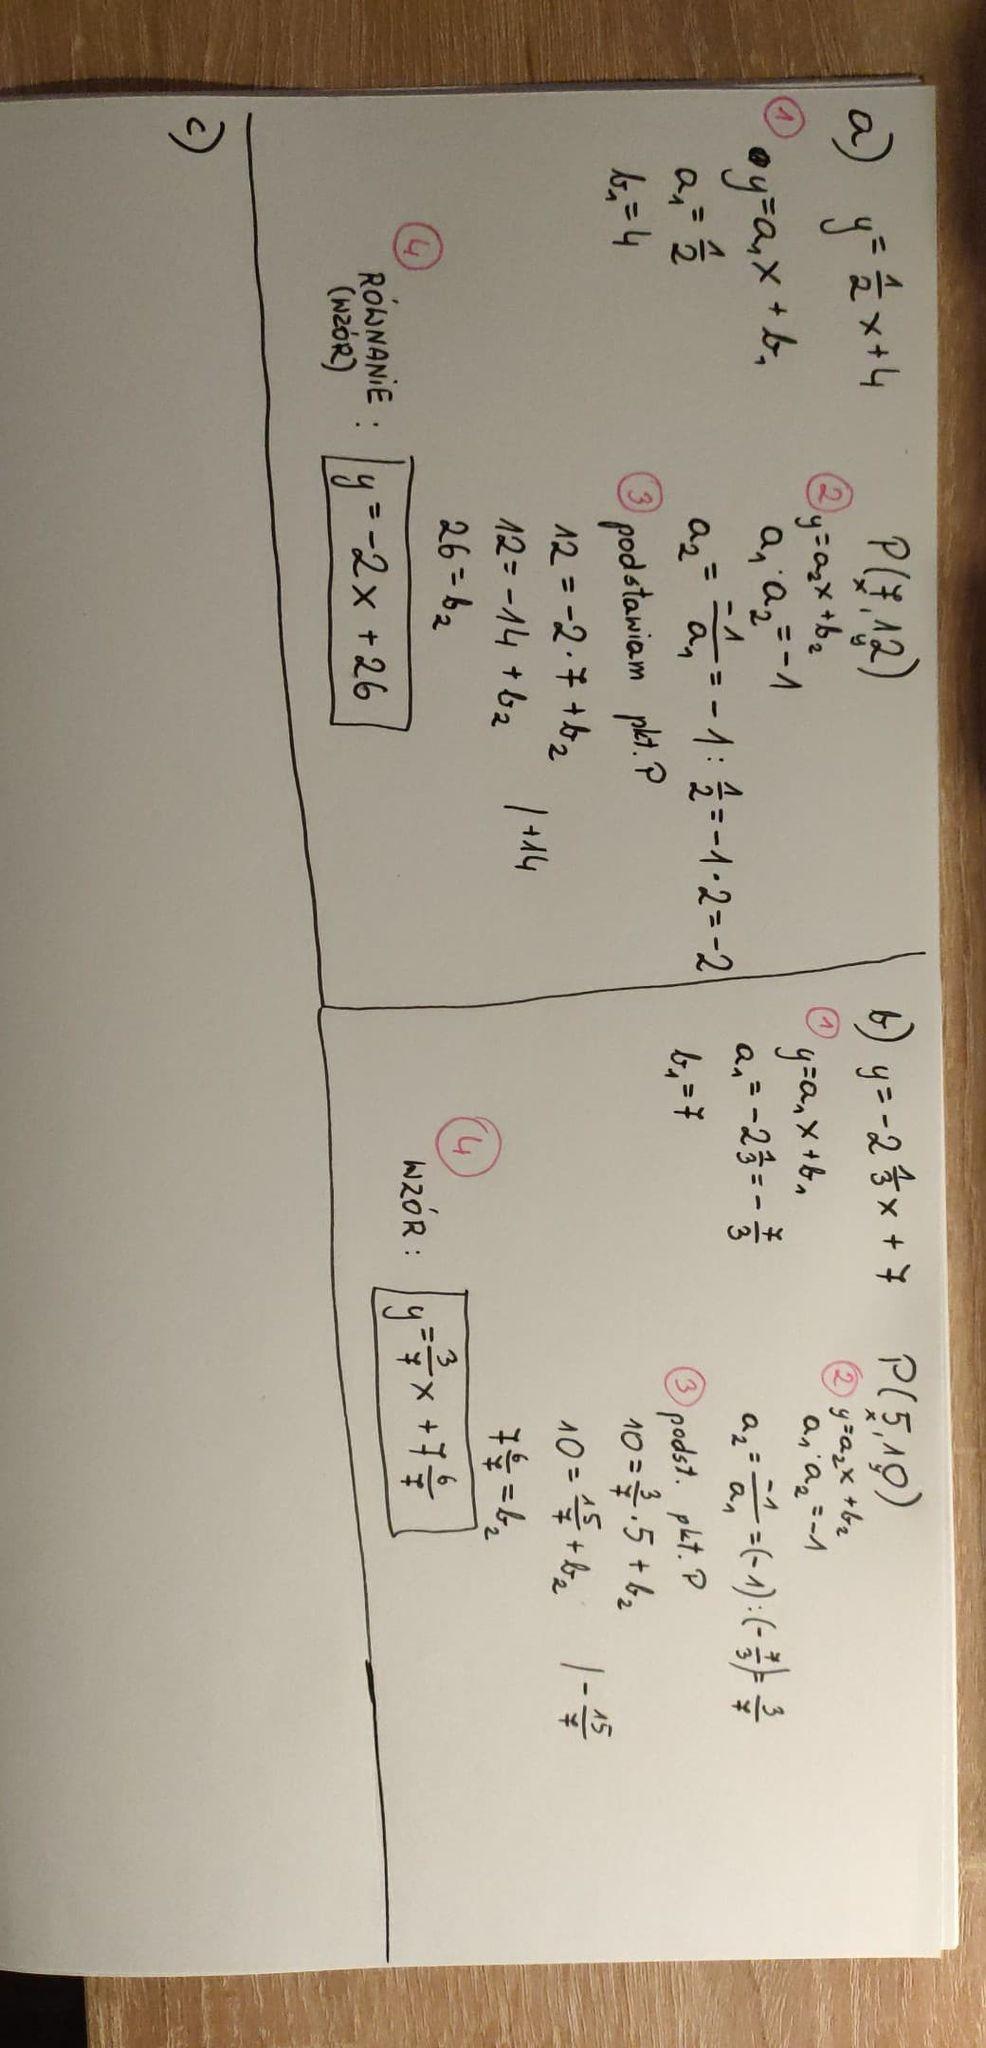 a) y = 1/2 x + 4 P(7, 12)
x, y
① y = a₁x + b₁
a₁ = 1/2
b₁ = 4
② y = a₂x + b₂
a₁ · a₂ = -1
a₂ = -1/a₁ = -1 : 1/2 = -1 · 2 = -2
③ podstawiam pkt. P
12 = -2 · 7 + b₂
12 = -14 + b₂ / +14
26 = b₂
④ RÓWNANIE :
(WZÓR)
y = -2x + 26
b) y = -2 1/3 x + 7 P(5, 10)
x, y
① y = a₁x + b₁
a₁ = -2 1/3 = -7/3
b₁ = 7
② y = a₂x + b₂
a₁ · a₂ = -1
a₂ = -1/a₁ = (-1) : (-7/3) = 3/7
③ podst. pkt. P
10 = 3/7 · 5 + b₂
10 = 15/7 + b₂ / - 15/7
7 6/7 = b₂
④ WZÓR :
y = 3/7 x + 7 6/7
c)